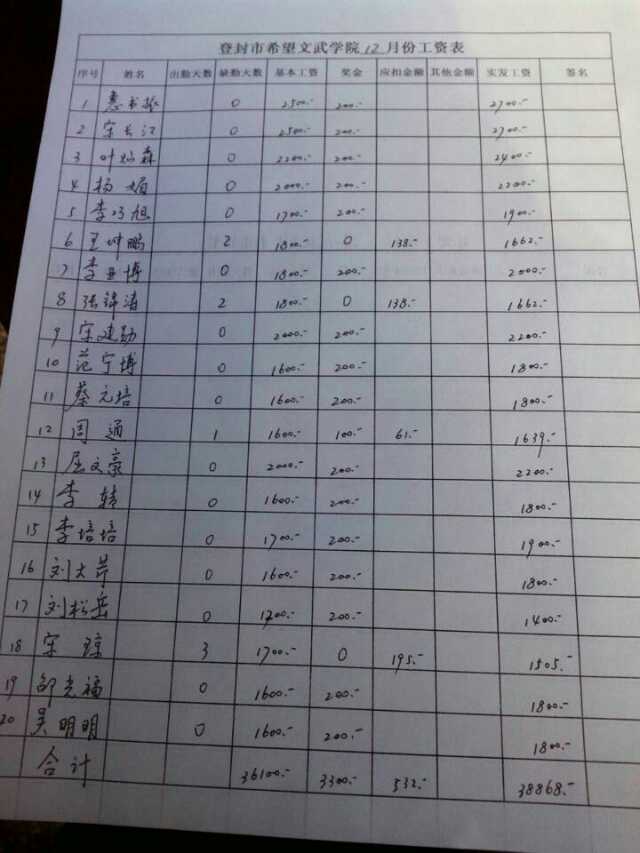 登封市希望文武学院12月份工资表
序号 姓名 出勤天数 缺勤天数 基本工资 奖金 应扣金额 其他金额 实发工资 签名
1 惠书振 0 2500.- 200.- 2700.-
2 宋长江 0 2500.- 200.- 2700.-
3 叶灿森 0 2200.- 200.- 2400.-
4 杨媚 0 2000.- 200.- 2200.-
5 李巧旭 0 1700.- 200.- 1900.-
6 王坤鹏 2 1800.- 0 138.- 1662.-
7 李亚博 0 1800.- 200.- 2000.-
8 张锦涛 2 1800.- 0 138.- 1662.-
9 宋建勋 0 2000.- 200.- 2200.-
10 范宁博 0 1600.- 200.- 1800.-
11 蔡元培 0 1600.- 200.- 1800.-
12 周通 1 1600.- 100.- 61.- 1639.-
13 屈文豪 0 2000.- 200.- 2200.-
14 李转 0 1600.- 200.- 1800.-
15 李培培 0 1700.- 200.- 1900.-
16 刘大 0 1600.- 200.- 1800.-
17 刘松岳 0 1200.- 200.- 1400.-
18 宋琼 3 1700.- 0 195.- 1505.-
19 邵光福 0 1600.- 200.- 1800.-
20 吴明明 0 1600.- 200.- 1800.-
合计 36100.- 3300.- 532.- 38868.-